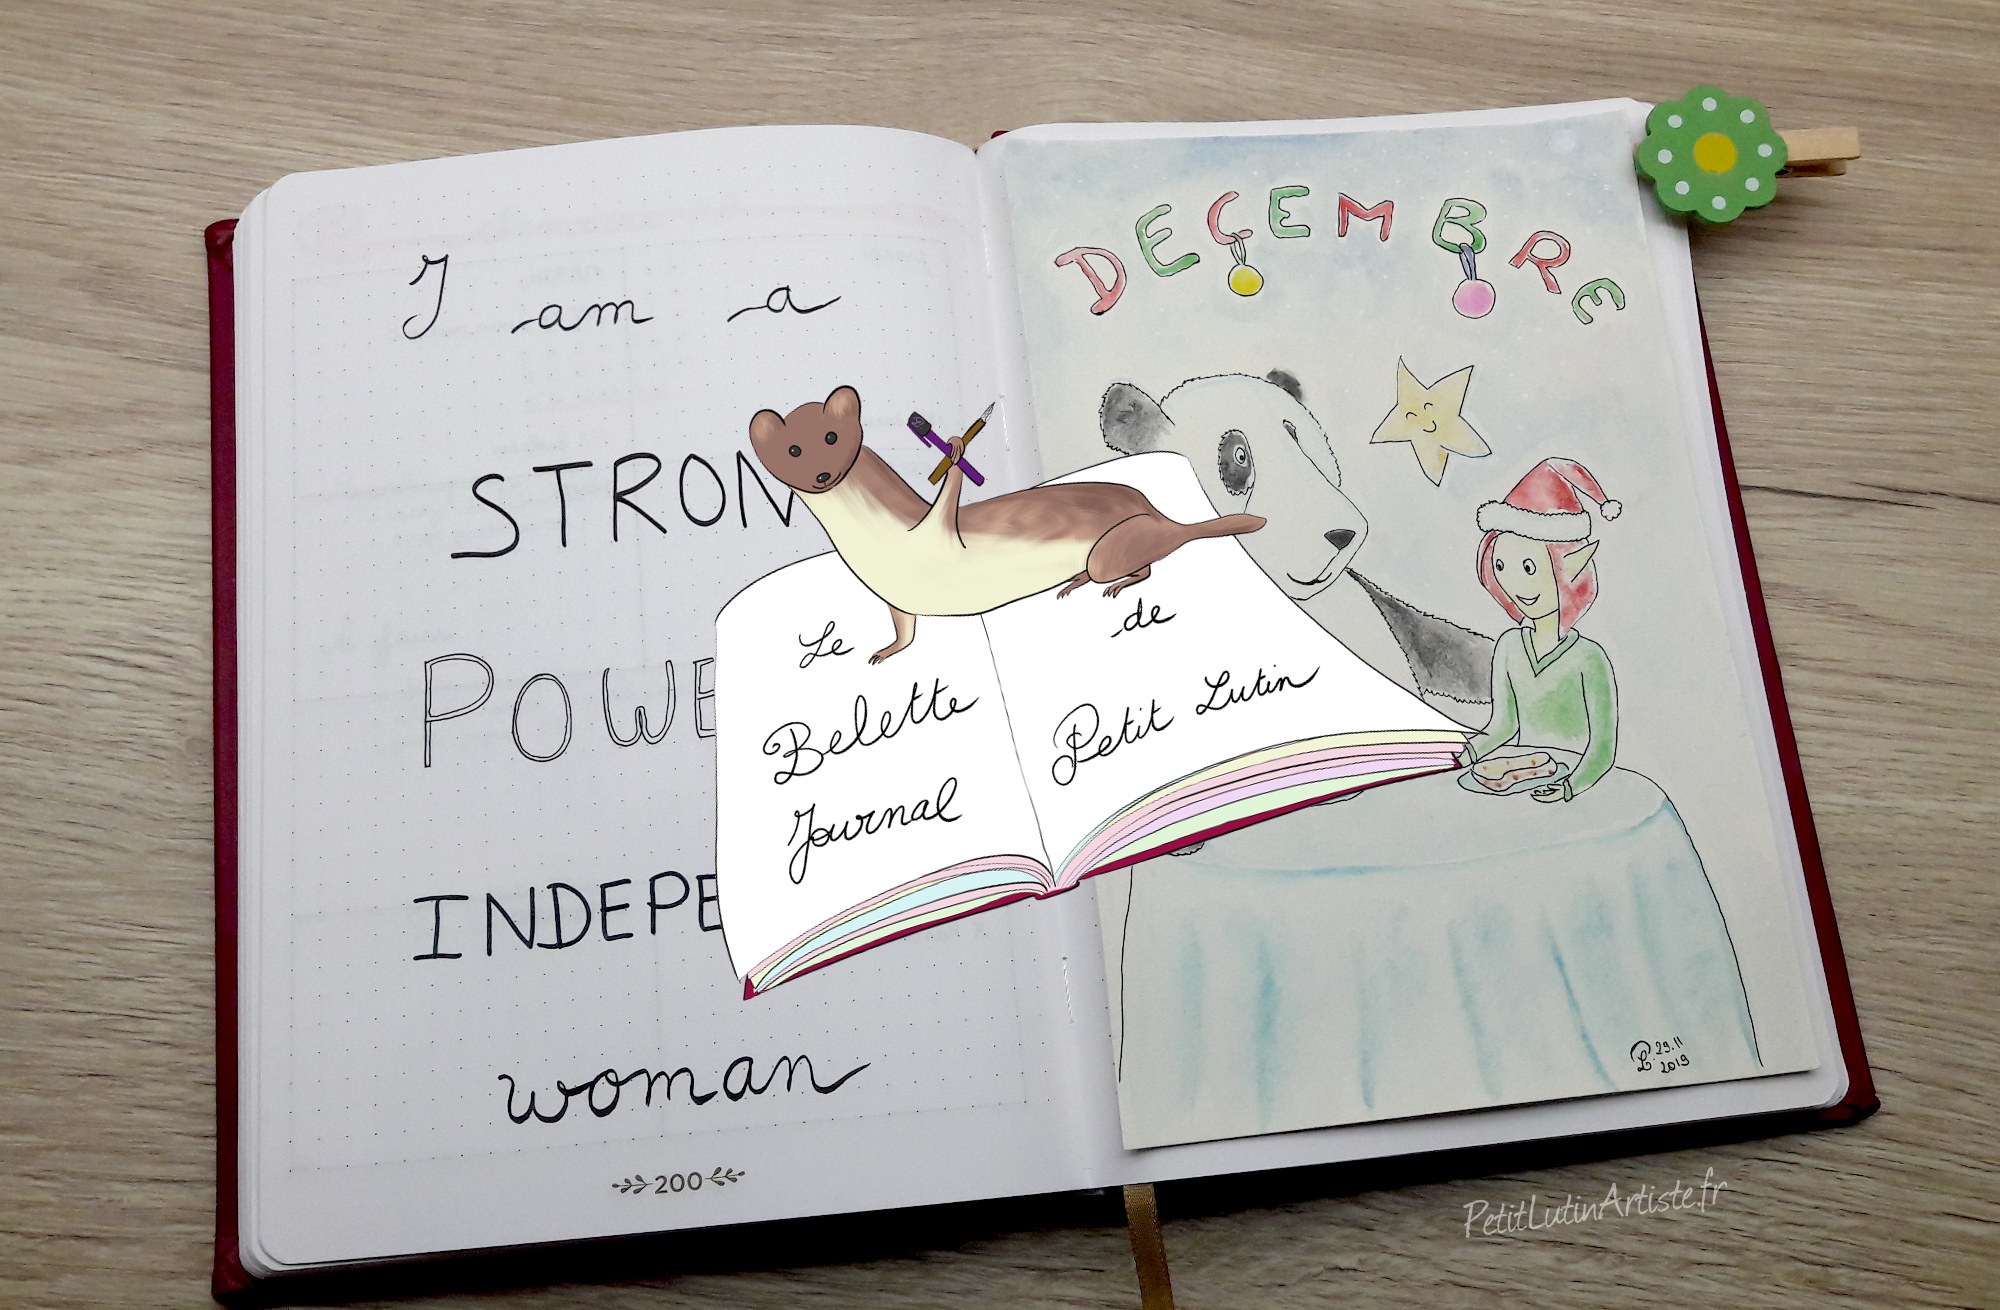 I am a
STRON
POWE
INDEPE
woman
200
DECEMBRE
Le
Belette
Journal
de
Petit Lutin
PL 29.11
2019
PetitLutinArtiste.fr